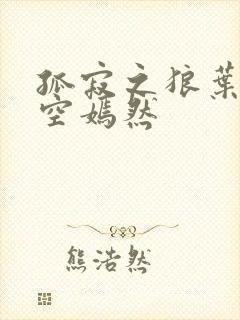 孤寂之狼葉
空嫣然
熊浩然